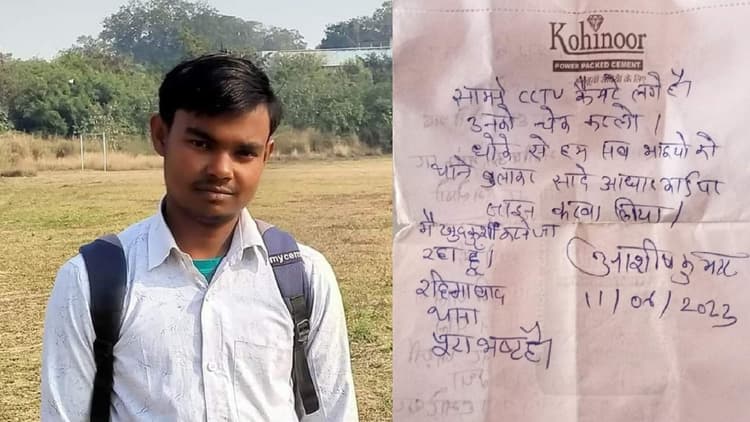 mycem
Kohinoor
POWER PACKED CEMENT
सामने CCTV कैमरे लगे है।
उनको चेक करलो।
धोखे से हम सब भाइयो को
थाने बुलाकर सादे आधार कार्ड पर
साइन करवा लिया।
मै खुदकुशी करने जा
रहा हूँ।
रहिमाबाद
थाना
पूरा भ्रष्ट है।
आशीष कुमार
11/04/2023